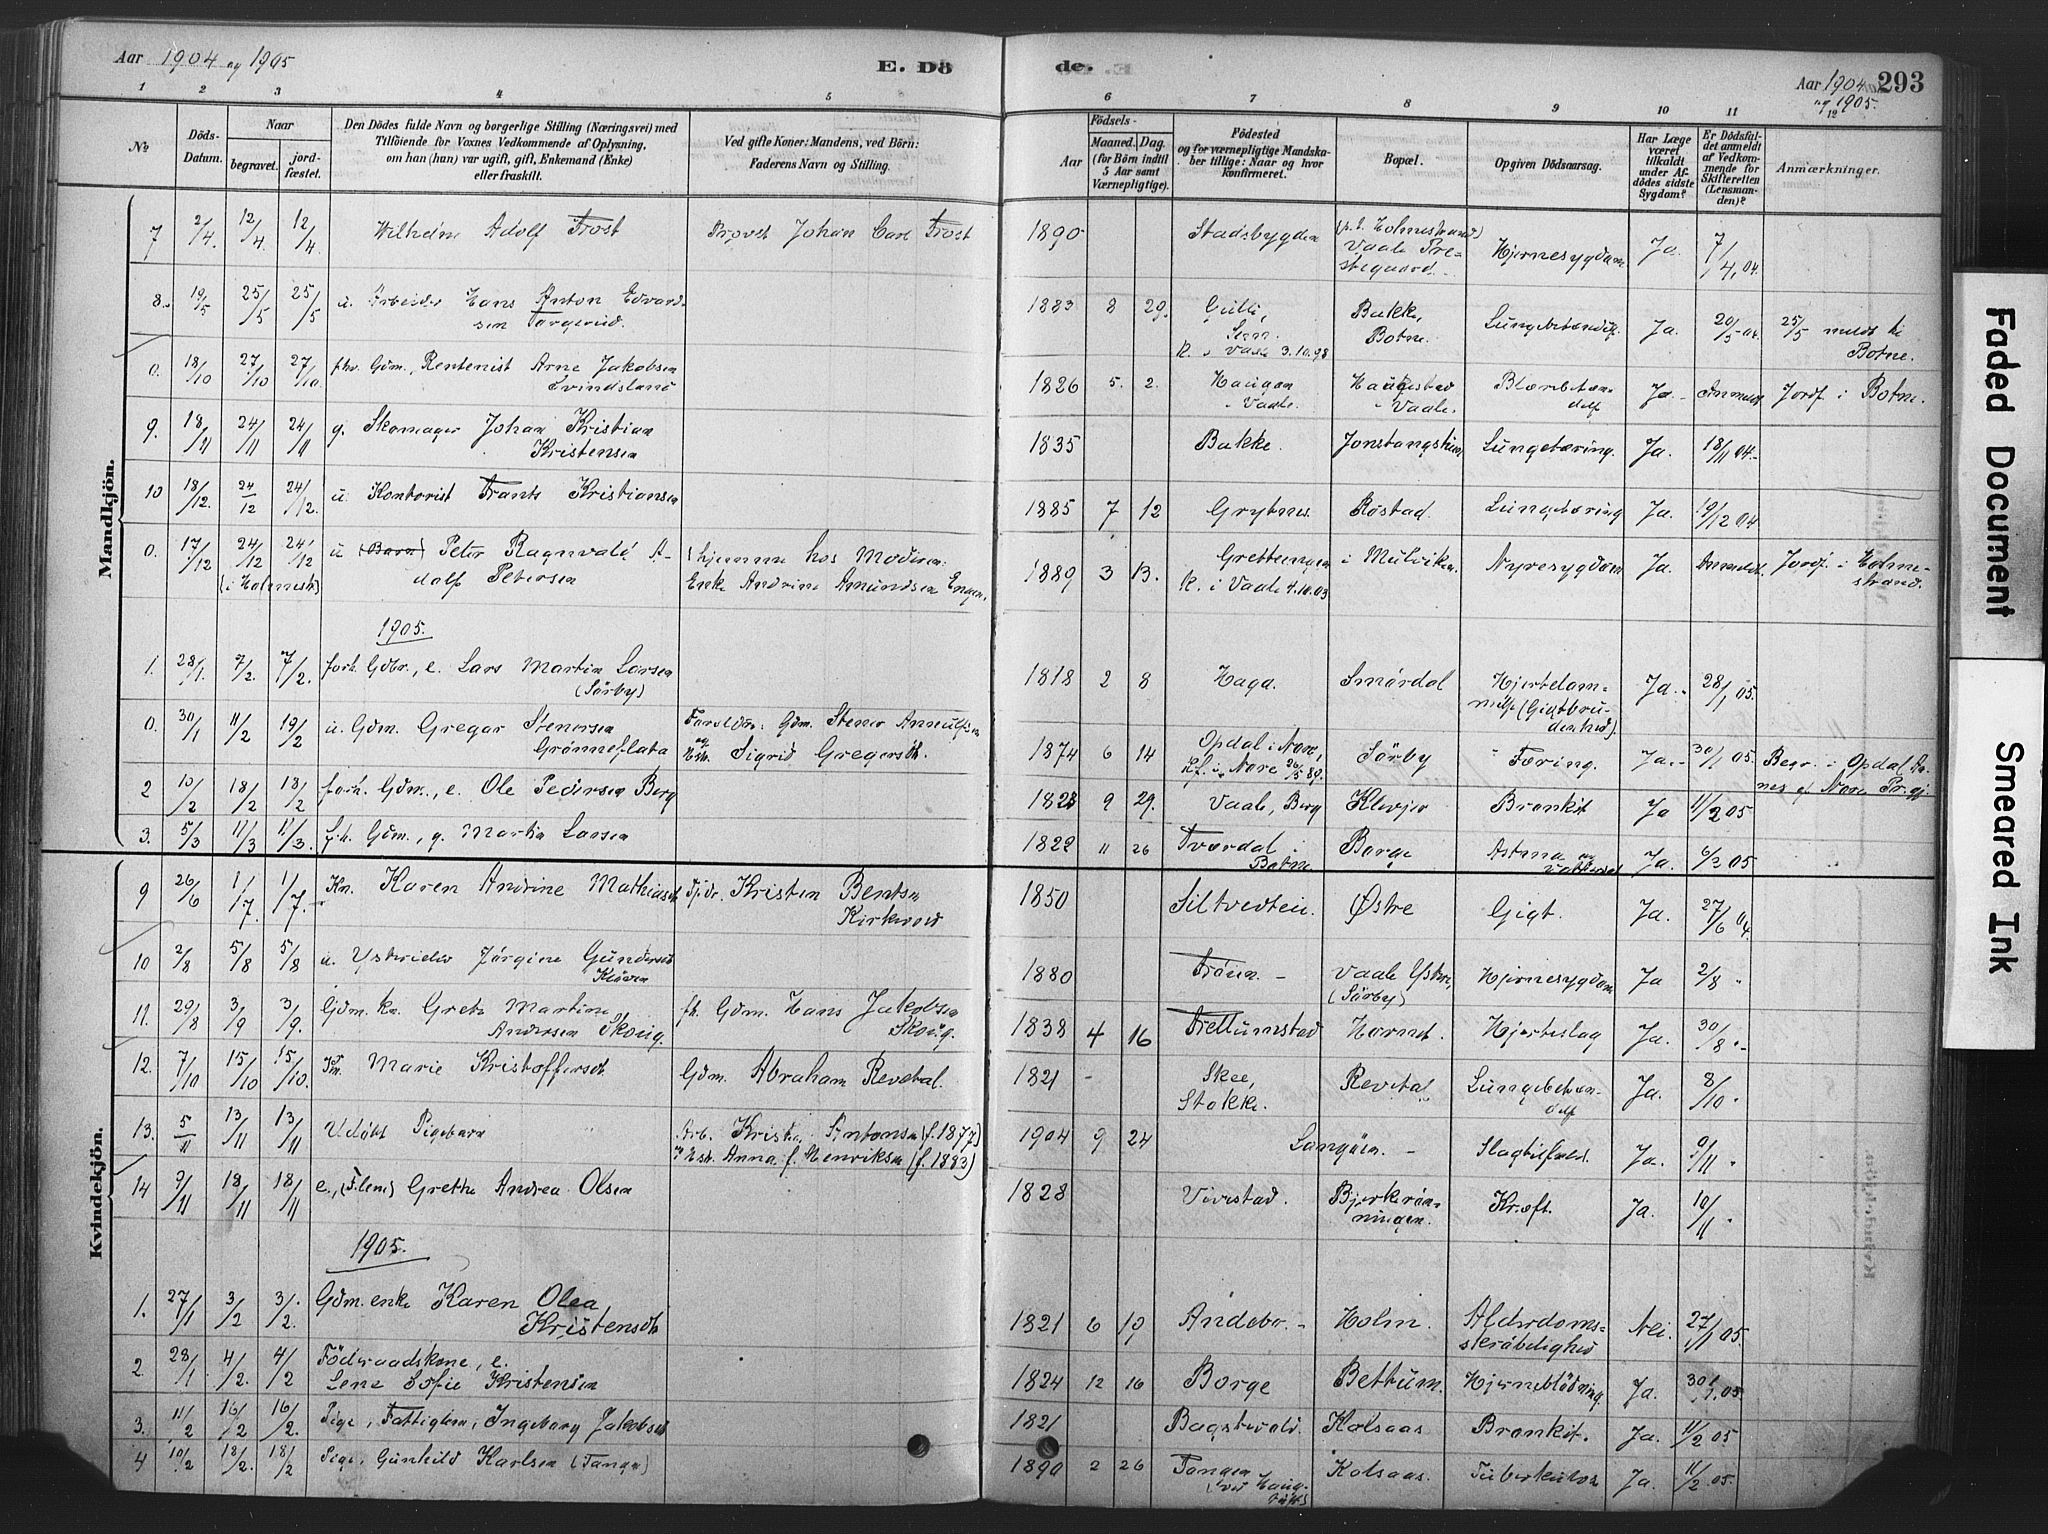 Aar 1904 og 1905
E. Dö
de.
Aar 1904 og 1905.
293
1 2 3 4 5
6 7 8 9 10 11 12
No
Döds-Datum.
Naar
begravet.
jordfæstet.
Den Dödes fulde Navn og borgerlige Stilling (Næringsvei) med
Tilföiende for Voxnes Vedkommende af Oplysning,
om han (hun) var ugift, gift, Enkemand (Enke)
eller fraskilt.
Ved gifte Koner: Mandens, ved Börn:
Faderens Navn og Stilling.
Födsels-
Aar
Maaned. Dag.
(for Börn indtil
5 Aar samt
Værnepligtige).
Födested
og for værnepligtige Mandskaber tillige: Naar og hvor
Konfirmeret.
Bopæl.
Opgiven Dödsaarsag.
Har Læge
været
tilkaldt
under Afdödes sidste
Sygdom?
Er Dödsfaldet anmeldt
af Vedkommende for
Skifteretten
(Lensmanden)?
Anmærkninger.
Mandkjön.
7 2/4 12/4 12/4 Wilhelm Adolf Frost Provst Johan Carl Frost 1890 Stadsbygden (p. t. Holmestrand) Vaale Prestegaard Hjernesygdom Ja 7/4 04
8. 19/5 25/5 25/5 u. Arbeider Hans Anton Edvardsen Torgerud. 1883 8 29. Gulli, Sem. K. i Vaale 3.10.98 Bakke, Botne. Ja. 20/5 04 25/5 Botne.
0. 18/10 27/10 27/10 fhv. Gdm., Rentenist Arne Jakobsen Svindsland 1826 5. 2. Haugan Vaale. Haugestad Vaale. Ja Anmeldt Jordf. i Botne.
9. 18/11 24/11 24/11 g. Skomager Johan Kristian Kristensen 1835 Bakke. Lungetæring. Ja. 18/11 04.
10 18/12. 24/12 24/12. u. Kontorist Frants Kristiansen 1885 7 12 Grytnes Röstad. Lungetæring Ja. 19/12 04
0. 17/12 24/12 24/12 (i Holmestr) u (Barn) Peter Ragnvald Adolf Petersen (hjemme hos Moderen: Enke Andrine Amundsen Engen. 1889 3 13. Grettenengen K. i Vaale 4.10.03 i Mulviken. Nyresygdom Ja. Anmeldt. Jordf. i Holmestrand.
1905.
1. 28/1. 7/2. 7/2. forh. Gdbr., e. Lars Martin Larsen (Sörby) 1818 2 8 Haga. Smördal Ja. 28/1 05.
0. 30/1 11/2 19/2 u. Gdm. Gregar Stenersen Grönneflata Forældre: Gdm. Stener Arnulfsen og Hstr. Sigrid Gregersdt. 1874 6 14 Opdal i Nore, Kf. i Nore 26/5 89. Sörby Tæring. Ja. 30/1 05. Begr. i Opdal Annex af Nore Prgj
2 10/2 18/2 18/2 forh. Gdm., e. Ole Pedersen Berg 1828 9 29. Vaale, Berg Klevjer Bronkit Ja 11/2 05
3. 5/3 11/3 11/3. fh. Gdm., g. Martin Larsen 1822 11 26 Tværdal i Botne Borge Astma og Vattersot Ja. 6/3 05
Kvindekjön.
9 26/6 1/7. 1/7. Kn. Karen Andrine Mathiasdt Kristen Bentsen Kirkevold 1850 Siltvedteie. Østre Gigt. Ja. 27/6 04.
10 2/8 5/8 5/8 u. Jörgine Gundersdt Klöven 1880 Tröen Vaale Ystre, (Sörby) Hjernesygdom Ja 2/8 "
11. 29/8 3/9 3/9. Gdm. kn. Grete Martine Andersen Skoug. fh. Gdm. Hans Jakobsen Skoug. 1838 4 16 Trettumstad Hjerteslag Ja. 30/8 "
12. 7/10 15/10 15/10. Marie Kristoffersdt. Gdm. Abraham Revetal. 1821 - Skee, Stokke. Revetal Lungebetændelse Ja. 8/10 "
13. 5/11 13/11 13/11 Udöbt Pigebarn Arb. Kristian Antonsen (f. 1877) og Hstr. Anna f. Henriksen (f. 1883) 1904 9 24 Langöen. Slagtilfælde. Ja. 9/11 "
14 9/11 18/11 18/11 e., (F.lem) Grethe Andrea Olsen 1828 Vivestad. Bjerkerönningen. Kræft. Ja. 10/11 "
1905.
1. 27/1 3/2 3/2. Gdm. enke Karen Olea Kristensdt. 1821 6 10, Andebu. Holm. Alderdomsskröbelighed Nei. 27/1 05.
2 28/1 4/2. 4/2 Födraadskone, e. Lene Sofie Kristensen 1824 12 16 Borge Bettum. Hjerneblödning. Ja. 30/1. 05.
3. 11/2 16/2 16/2. Pige, Fattiglem, Ingeborg Jakobsdt 1821 Bagstevold. Kolsaas Bronkit. Ja. 11/2 05
4 10/2 18/2. 18/2 Pige, Gunhild Karlsen (Tangen) 1890 2 26 Tangen Kolsaas. Tuberkulose Ja. 11/2 05.
Faded Document
Smeared Ink